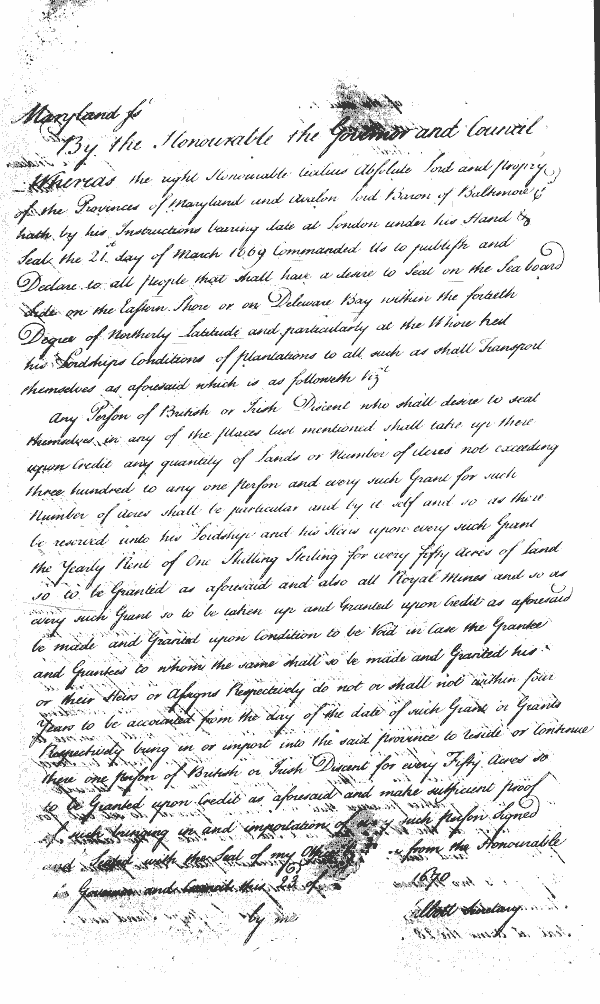 Maryland ss
By the Honourable the Governor and Council
Whereas the right Honourable Cecilius Absolute Lord and propry
of the Provinces of Maryland and Avalon Lord Baron of Baltimore &c
hath by his Instructions bearing date at London under his Hand &
Seal the 21st day of March 1669 Commanded Us to publish and
Declare to all people that shall have a desire to Seat on the Seaboard
Side on the Eastern Shore or on Deleware Bay within the fortieth
Degree of Northerly Latitude and particularly at the Whore kill
his Lordships Conditions of plantations to all such as shall Transport
themselves as aforesaid which is as followeth Vizt
Any Person of British or Irish Discent who shall desire to seat
themselves in any of the places last mentioned shall take up there
upon Credit any quantity of Lands or Number of Acres not exceeding
three hundred to any one person and every such Grant for such
Number of Acres shall be particular and by it self and so as there
be reserved unto his Lordship and his Heirs upon every such Grant
the Yearly Rent of One Shilling Sterling for every fifty Acres of Land
so to be Granted as aforesaid and also all Royal Mines and so as
every such Grant so to be taken up and Granted upon Credit as aforesaid
be made and Granted upon Condition to be Void in Case the Grantee
and Grantees to whom the same shall so be made and Granted his
or their Heirs or Assigns Respectively do not or shall not within four
Years to be accounted from the day of the date of such Grant or Grants
Respectively bring in or import into the said province to reside or Continue
there one person of British or Irish Discent for every Fifty Acres so
to be Granted upon Credit as aforesaid and make sufficient proof
of such bringing in and importation of such person Signed
and Sealed with the Seal of my Office from the Honourable
Governor and Council this 23 of 1670
by me Secretary